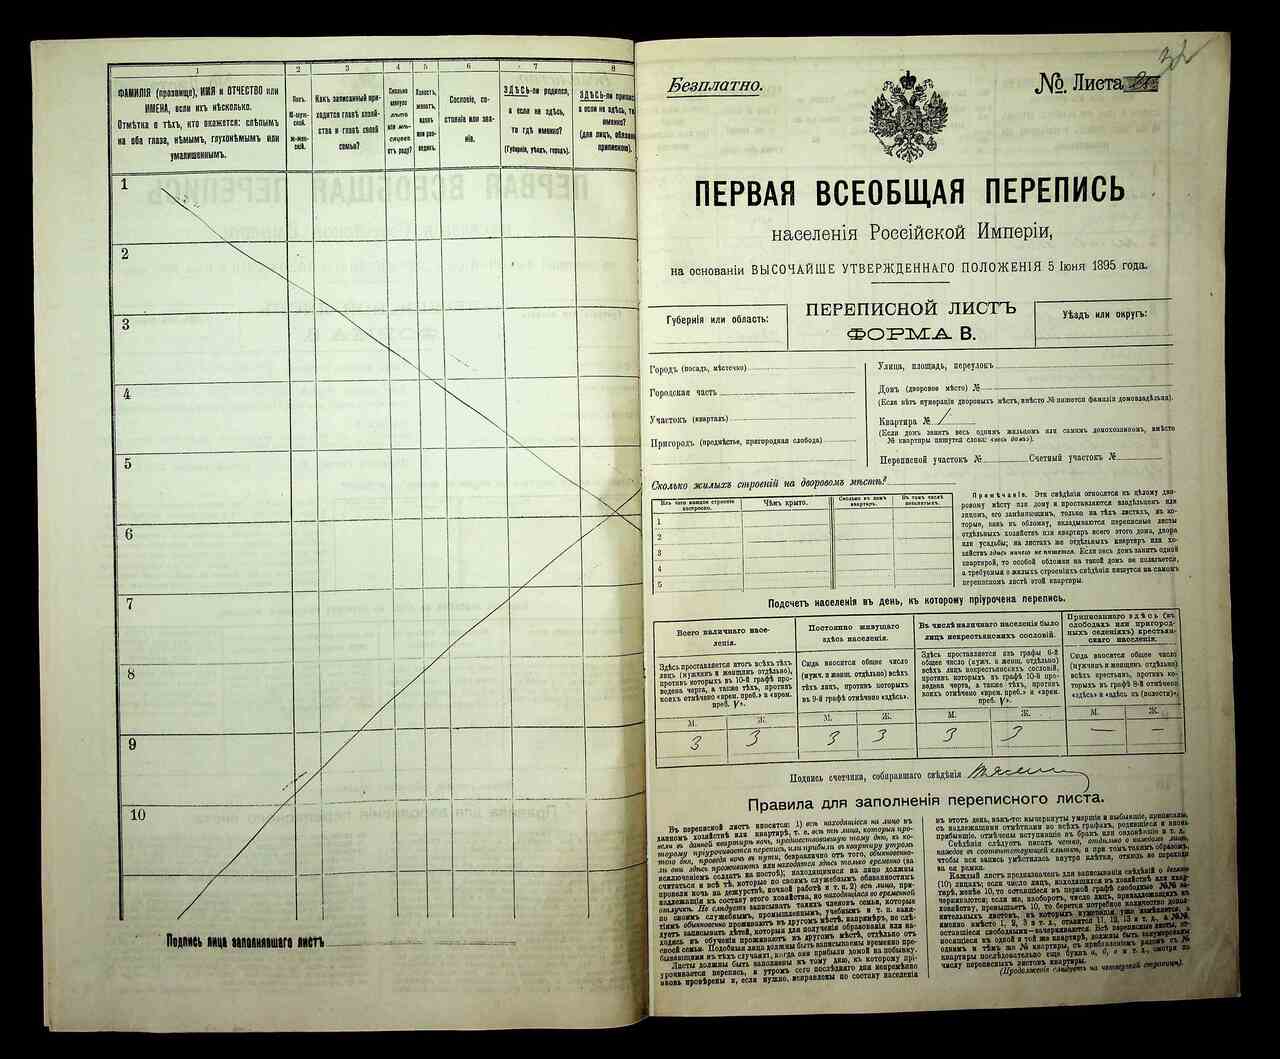 1
ФАМИЛІЯ (прозвище), ИМЯ и ОТЧЕСТВО или
ИМЕНА, если ихъ нѣсколько.
Отмѣтка о тѣхъ, кто окажется: слѣпымъ
на оба глаза, нѣмымъ, глухонѣмымъ или
умалишеннымъ.
2
Полъ.
М-муж-
ской.
ж-жен-
скій.
3
Какъ записанный при-
ходится главѣ хозяй-
ства и главѣ своей
семьи?
4
Сколько
минуло
лѣтъ
или мѣ-
сяцевъ
отъ роду?
5
Холостъ,
женатъ,
вдовъ
или раз-
веденъ.
6
Сословіе, со-
стояніе или зва-
ніе.
7
ЗДѢСЬ-ли родился,
а если не здѣсь,
то гдѣ именно?
(Губернія, уѣздъ, городъ).
8
ЗДѢСЬ-ли приписан
а если не здѣсь, то
именно?
(для лицъ, обязан
припиской).
1
2
3
4
5
6
7
8
9
10
Подпись лица заполнявшаго листъ
32
Безплатно.
№ Листа
ПЕРВАЯ ВСЕОБЩАЯ ПЕРЕПИСЬ
населенія Россійской Имперіи,
на основаніи ВЫСОЧАЙШЕ УТВЕРЖДЕННАГО ПОЛОЖЕНІЯ 5 Іюня 1895 года.
Губернія или область:
ПЕРЕПИСНОЙ ЛИСТЪ
ФОРМА В.
Уѣздъ или округъ:
Городъ (посадъ, мѣстечко)
Городская часть
Участокъ (кварталъ)
Пригородъ (предмѣстье, пригородная слобода)
Улица, площадь, переулокъ
Домъ (дворовое мѣсто) №
(Если нѣтъ нумераціи дворовыхъ мѣстъ, вмѣсто № пишется фамилія домовладѣльца).
Квартира № 1
(Если домъ занятъ весь однимъ жильцомъ или самимъ домохозяиномъ, вмѣсто
№ квартиры пишутся слова: «весь домъ»).
Переписной участокъ № Счетный участокъ №
Сколько жилыхъ строеній на дворовомъ мѣстѣ?
Изъ чего каждое строеніе
построено.
Чѣмъ крыто.
Сколько въ домѣ
квартиръ.
Въ томъ числѣ
незанятыхъ.
1
2
3
4
5
Примѣчаніе. Эти свѣдѣнія относятся къ цѣлому дво-
ровому мѣсту или дому и проставляются владѣльцемъ или
лицомъ, его замѣняющимъ, только на тѣхъ листахъ, въ ко-
торые, какъ въ обложку, вкладываются переписные листы
отдѣльныхъ хозяйствъ или квартиръ всего этого дома, двора
или усадьбы; на листахъ же отдѣльныхъ квартиръ или хо-
зяйствъ здѣсь ничего не пишется. Если весь домъ занятъ одной
квартирой, то особой обложки на такой домъ не полагается,
а требуемыя о жилыхъ строеніяхъ свѣдѣнія пишутся на самомъ
переписномъ листѣ этой квартиры.
Подсчетъ населенія въ день, къ которому пріурочена перепись.
Всего наличнаго насе-
ленія.
Здѣсь проставляется итогъ всѣхъ тѣхъ
лицъ (мужчинъ и женщинъ отдѣльно),
противъ которыхъ въ 10-й графѣ про-
ведена черта, а также тѣхъ, противъ
коихъ отмѣчено «врем. преб.» и «врем.
преб. V».
Постоянно живущаго
здѣсь населенія.
Сюда вносится общее число
(мужч. и женщ. отдѣльно) всѣхъ
тѣхъ лицъ, противъ которыхъ
въ 9-й графѣ отмѣчено «здѣсь».
Въ числѣ наличнаго населенія было
лицъ некрестьянскихъ сословій.
Здѣсь проставляется изъ графы 6-й
общее число (мужч. и женщ. отдѣльно)
всѣхъ лицъ некрестьянскихъ сословій,
противъ которыхъ въ графѣ 10-й про-
ведена черта, а также тѣхъ, противъ
коихъ отмѣчено «врем. преб.» и «врем.
преб. V».
Приписаннаго здѣсь (въ
слободахъ или пригород-
ныхъ селеніяхъ) крестьян-
скаго населенія.
Сюда вносится общее число
(мужчинъ и женщинъ отдѣльно)
всѣхъ крестьянъ, противъ ко-
торыхъ въ графѣ 8-й отмѣчено
«здѣсь» и «здѣсь къ (волости)».
М. Ж. М. Ж. М. Ж. М. Ж.
3 3 3 3 3 3 — —
Подпись счетчика, собиравшаго свѣдѣнія
Правила для заполненія переписного листа.
Въ переписной листъ вносятся: 1) всѣ находящіеся на лицо въ
данномъ хозяйствѣ или квартирѣ, т. е. всѣ тѣ лица, которыя про-
вели въ данной квартирѣ ночь, предшествовавшую тому дню, къ ко-
торому пріурочивается перепись, или прибыли въ квартиру утромъ
того дня, проведя ночь въ пути, безразлично отъ того, обыкновенно-
ли они здѣсь проживаютъ или находятся здѣсь только временно (за
исключеніемъ солдатъ на постоѣ); находящимися на лицо должны
считаться и всѣ тѣ, которые по своимъ служебнымъ обязанностямъ
провели ночь на дежурствѣ, ночной работѣ и т. п. 2) всѣ лица, при-
надлежащія къ составу этого хозяйства, но находящіяся во временной
отлучкѣ. Не слѣдуетъ записывать такихъ членовъ семьи, которые
по своимъ служебнымъ, промышленнымъ, учебнымъ и т. п. заня-
тіямъ обыкновенно проживаютъ въ другомъ мѣстѣ, напримѣръ, не слѣ-
дуетъ записывать дѣтей, которыя для полученія образованія или на-
ходясь въ обученіи проживаютъ въ другомъ мѣстѣ, отдѣльно отъ
своей семьи. Подобныя лица должны быть записываемы временно пре-
бывающими въ тѣхъ случаяхъ, когда они прибыли домой на побывку.
Листы должны быть заполнены къ тому дню, къ которому прі-
урочивается перепись, и утромъ сего послѣдняго дня непремѣнно
вновь провѣрены и, если нужно, исправлены по составу населенія
въ этотъ день, какъ-то: вычеркнуты умершіе и выбывшіе, приписаны,
съ надлежащими отмѣтками во всѣхъ графахъ, родившіеся и вновь
прибывшіе, отмѣчены вступившіе въ бракъ или овдовѣвшіе и т. д.
Свѣдѣнія слѣдуетъ писать четко, отдѣльно о каждомъ лицѣ,
каждое въ соотвѣтствующей клѣткѣ, и при томъ такимъ образомъ,
чтобы вся запись умѣстилась внутри клѣтки, отнюдь не переходя
за ея рамки.
Каждый листъ предназначенъ для записыванія свѣдѣній о десяти
(10) лицахъ; если число лицъ, находящихся въ хозяйствѣ или квар-
тирѣ, менѣе 10, то оставшіеся въ первой графѣ свободные №№ за-
черкиваются; если же, наоборотъ, число лицъ, принадлежащихъ къ
хозяйству, превышаетъ 10, то берется потребное количество допол-
нительныхъ листовъ, въ которыхъ нумерація уже измѣняется, а
именно вмѣсто 1, 2, 3 и т. д. ставятся 11, 12, 13 и т. д., а №№,
оставшіеся свободными—зачеркиваются. Всѣ переписные листы, от-
носящіеся къ одной и той же квартирѣ, должны быть занумерованы
однимъ и тѣмъ же № квартиры, съ прибавленіемъ рядомъ съ №
квартиры послѣдовательно еще буквъ а, б, в и т. д., смотря по
числу переписныхъ листовъ квартиры.
(Продолженіе слѣдуетъ на четвертой страницѣ).